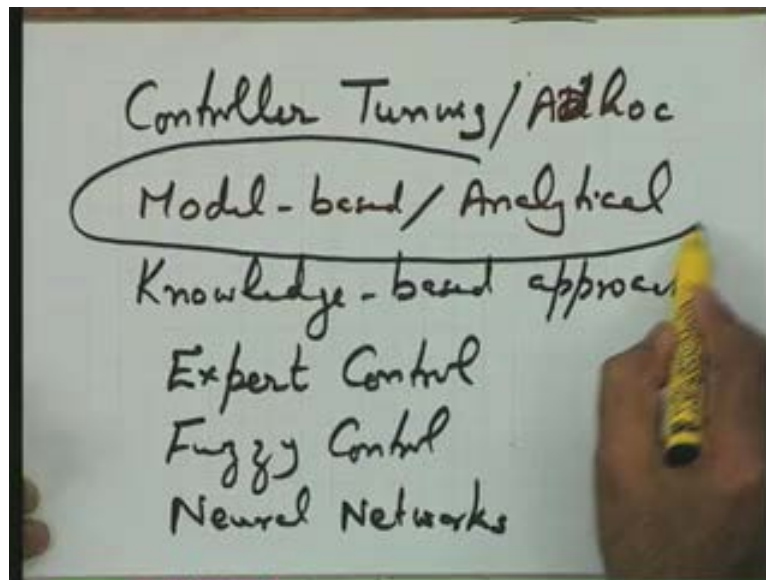 Controller Tuning/Adhoc
Model-based/Analytical
Knowledge-based
Expert Control
Fuzzy Control
Neural Networks